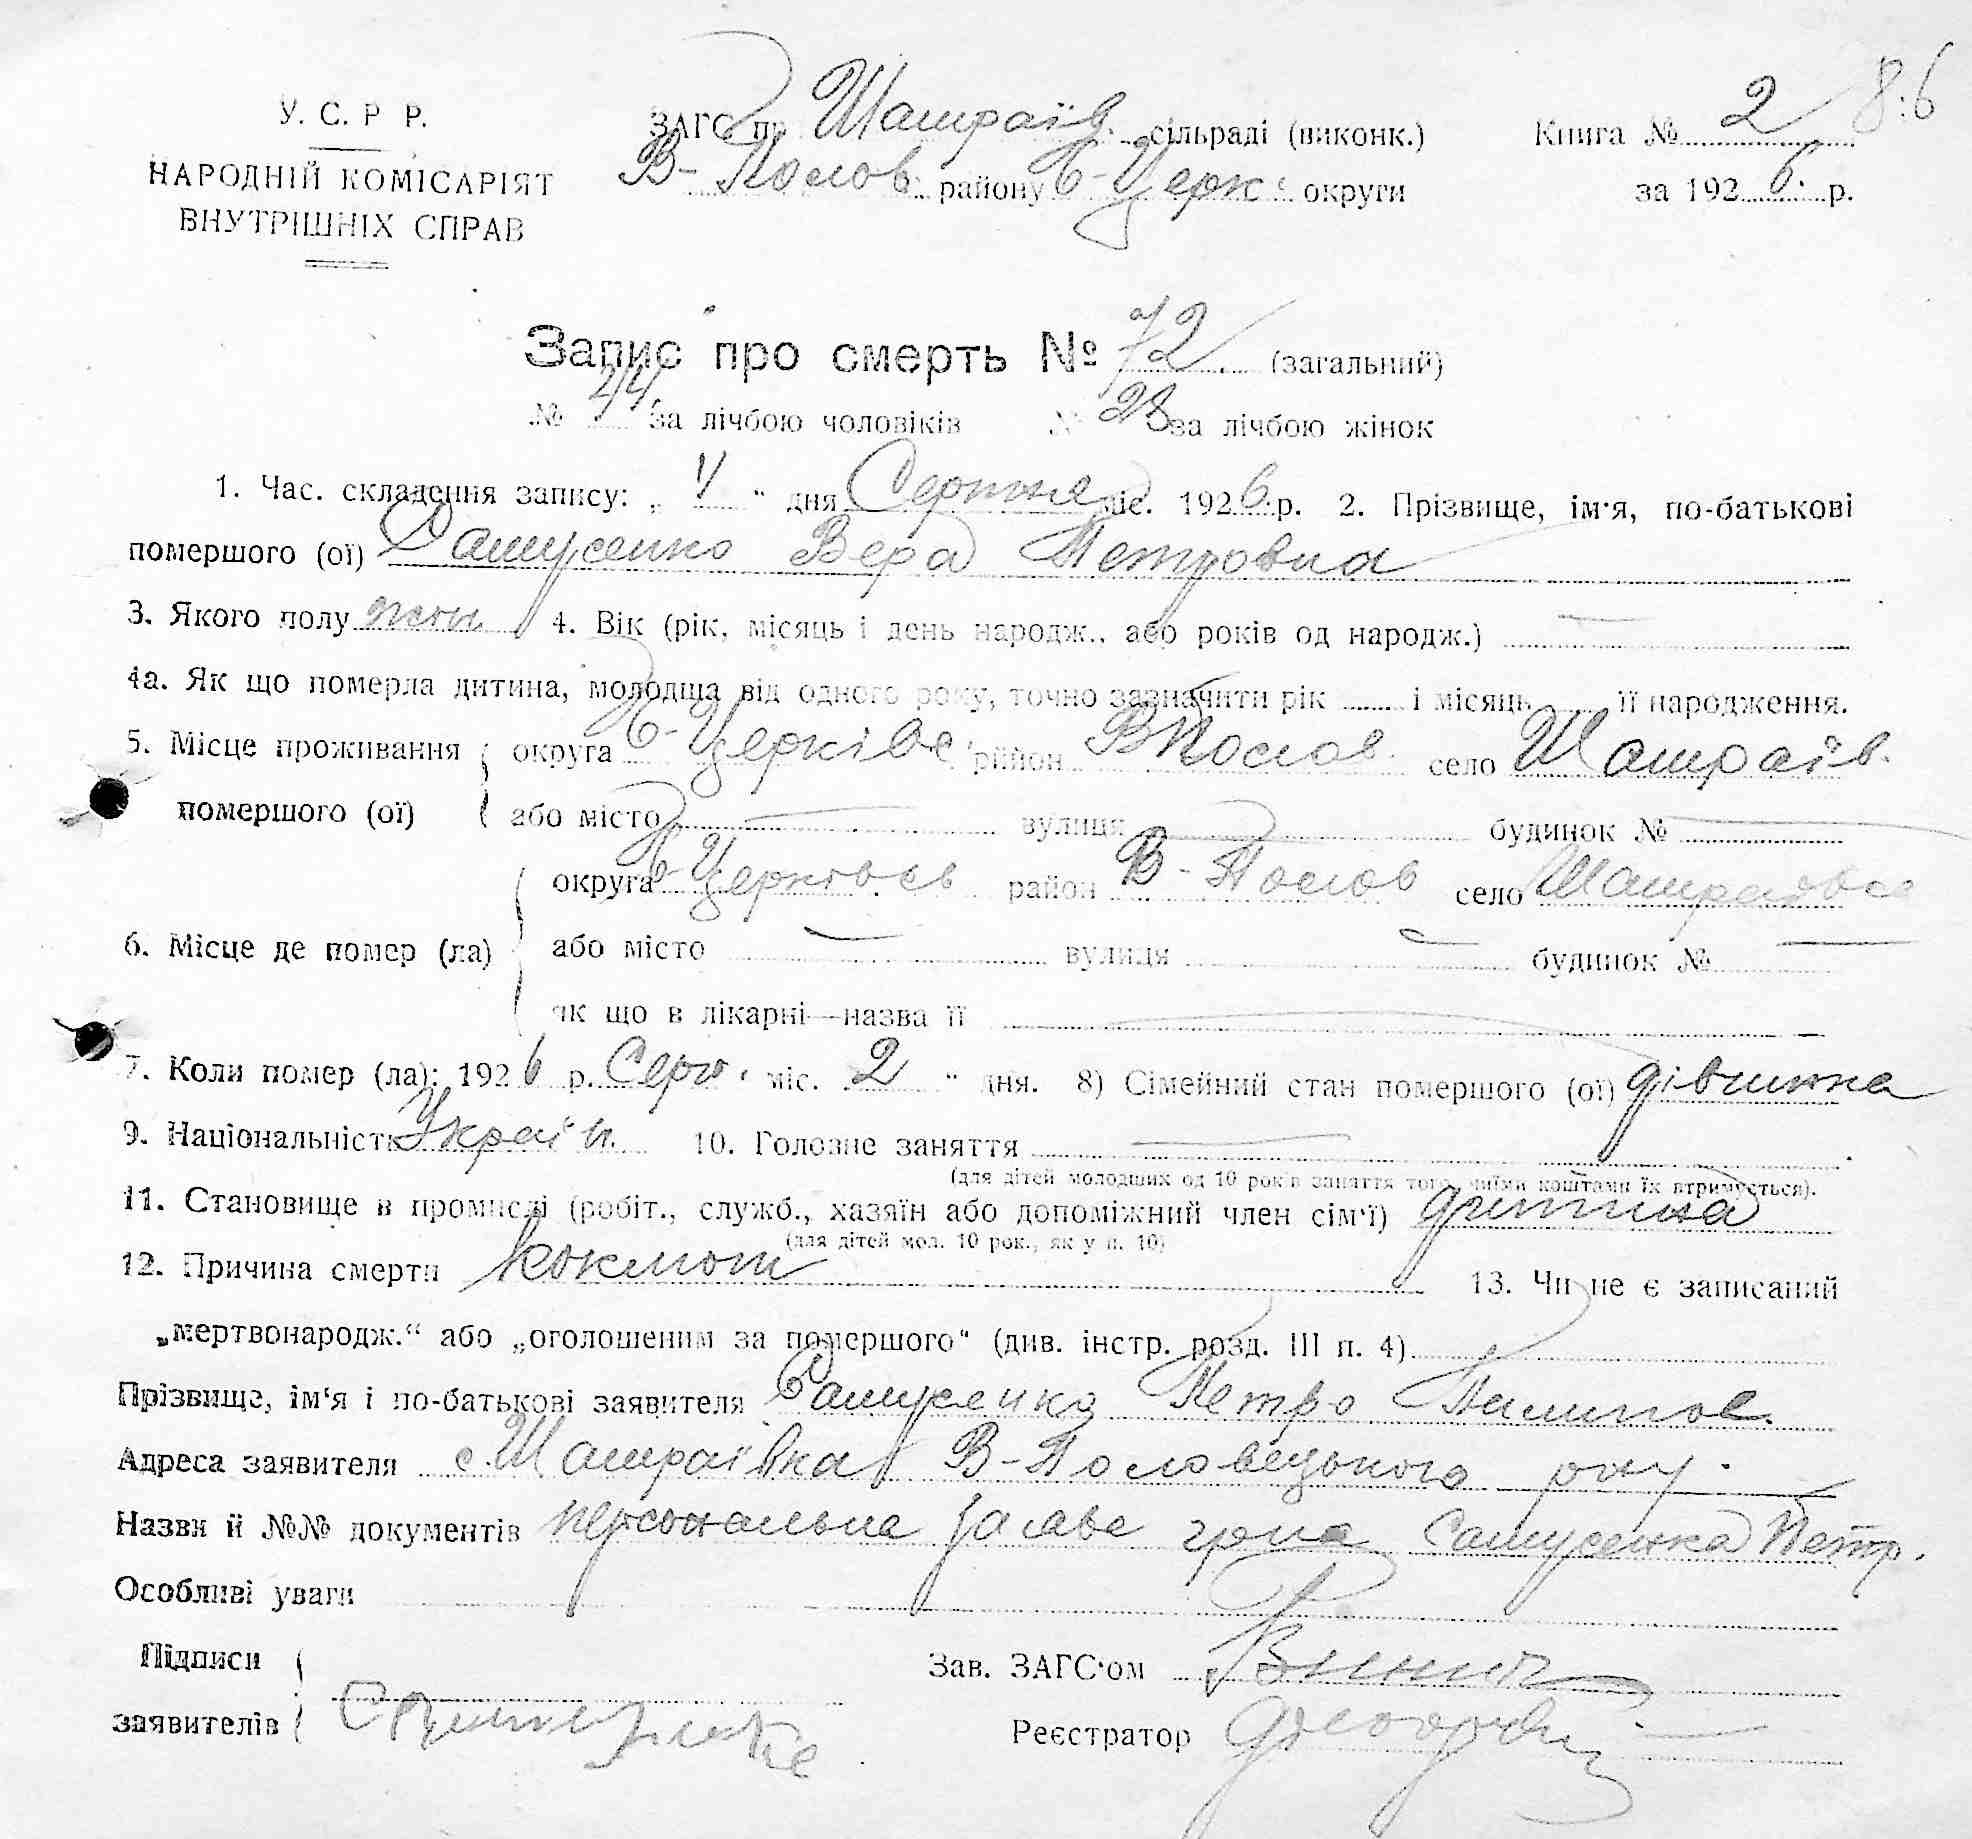 У. С. Р Р.
НАРОДНІЙ КОМІСАРІЯТ
ВНУТРІШНІХ СПРАВ
ЗАГС п Шамраїв. сільраді (виконк.)
В-Полов. району Б-Церк. округи
Книга № 2
86
за 1926 р.
Запис про смерть № 72 (загальний)
№ 44 за лічбою чоловіків № 28 за лічбою жінок
1. Час. складення запису: „ " дня Серпня міс. 1926 р. 2. Прізвище, ім'я, по-батькові
помершого (ої) Самусенко Вера Петровна
3. Якого полу жін 4. Вік (рік, місяць і день народж., або років од народж.) —
4а. Як що померла дитина, молодща від одного року, точно зазначити рік і місяць її народження.
5. Місце проживання помершого (ої) округа Б-Церківс. район ВПолов. село Шамраїв.
або місто — вулиця — будинок № —
6. Місце де помер (ла) округа Б-Церківсь район В-Полов село
або місто — вулиця — будинок № —
як що в лікарні—назва її —
7. Коли помер (ла): 1926 р. Серп. міс. 2 " дня. 8) Сімейний стан помершого (ої) дівчина
9. Національність Україн. 10. Головне заняття —
(для дітей молодших од 10 років заняття того, чиїми коштами їх втримується).
11. Становище в промислі (робіт., служб., хазяїн або допоміжний член сім'ї) дитина
(для дітей мол. 10 рок., як у п. 10)
12. Причина смерти Коклюш 13. Чи не є записаний
„мертвонародж.“ або „оголошеним за помершого“ (див. інстр. розд. III п. 4)
Прізвище, ім'я і по-батькові заявителя Самусенко Петро Пилипов.
Адреса заявителя с. Шамраївка В-Половецького рай.
Назви й №№ документів персональна заява гр-на Самусенка Петр.
Особливі уваги
Підписи заявителів
Зав. ЗАГС'ом
Реєстратор